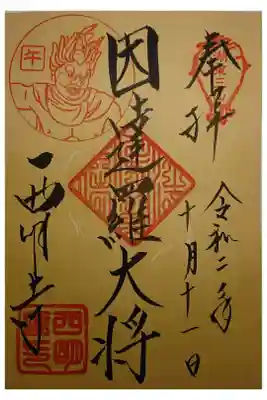 奉拝
令和二年
十月十一日
因達羅大将
午
西明寺